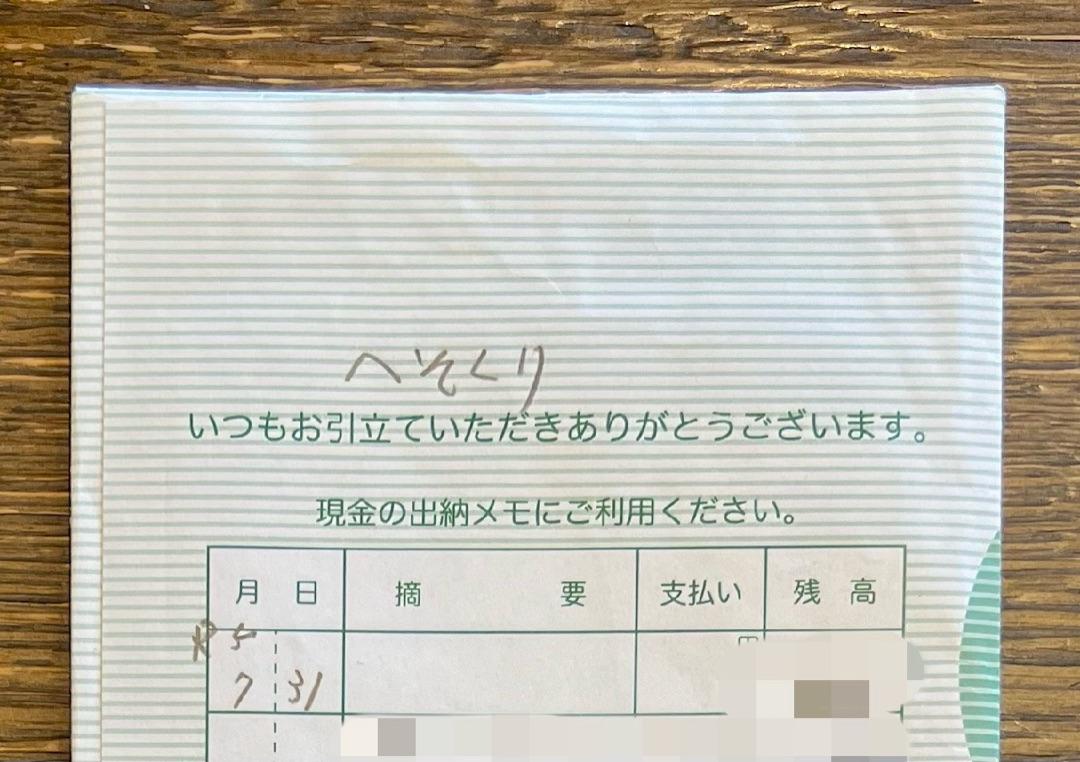 へそくり
いつもお引立ていただきありがとうございます。
現金の出納メモにご利用ください。
月 日 摘 要 支払い 残 高
R5
7 31